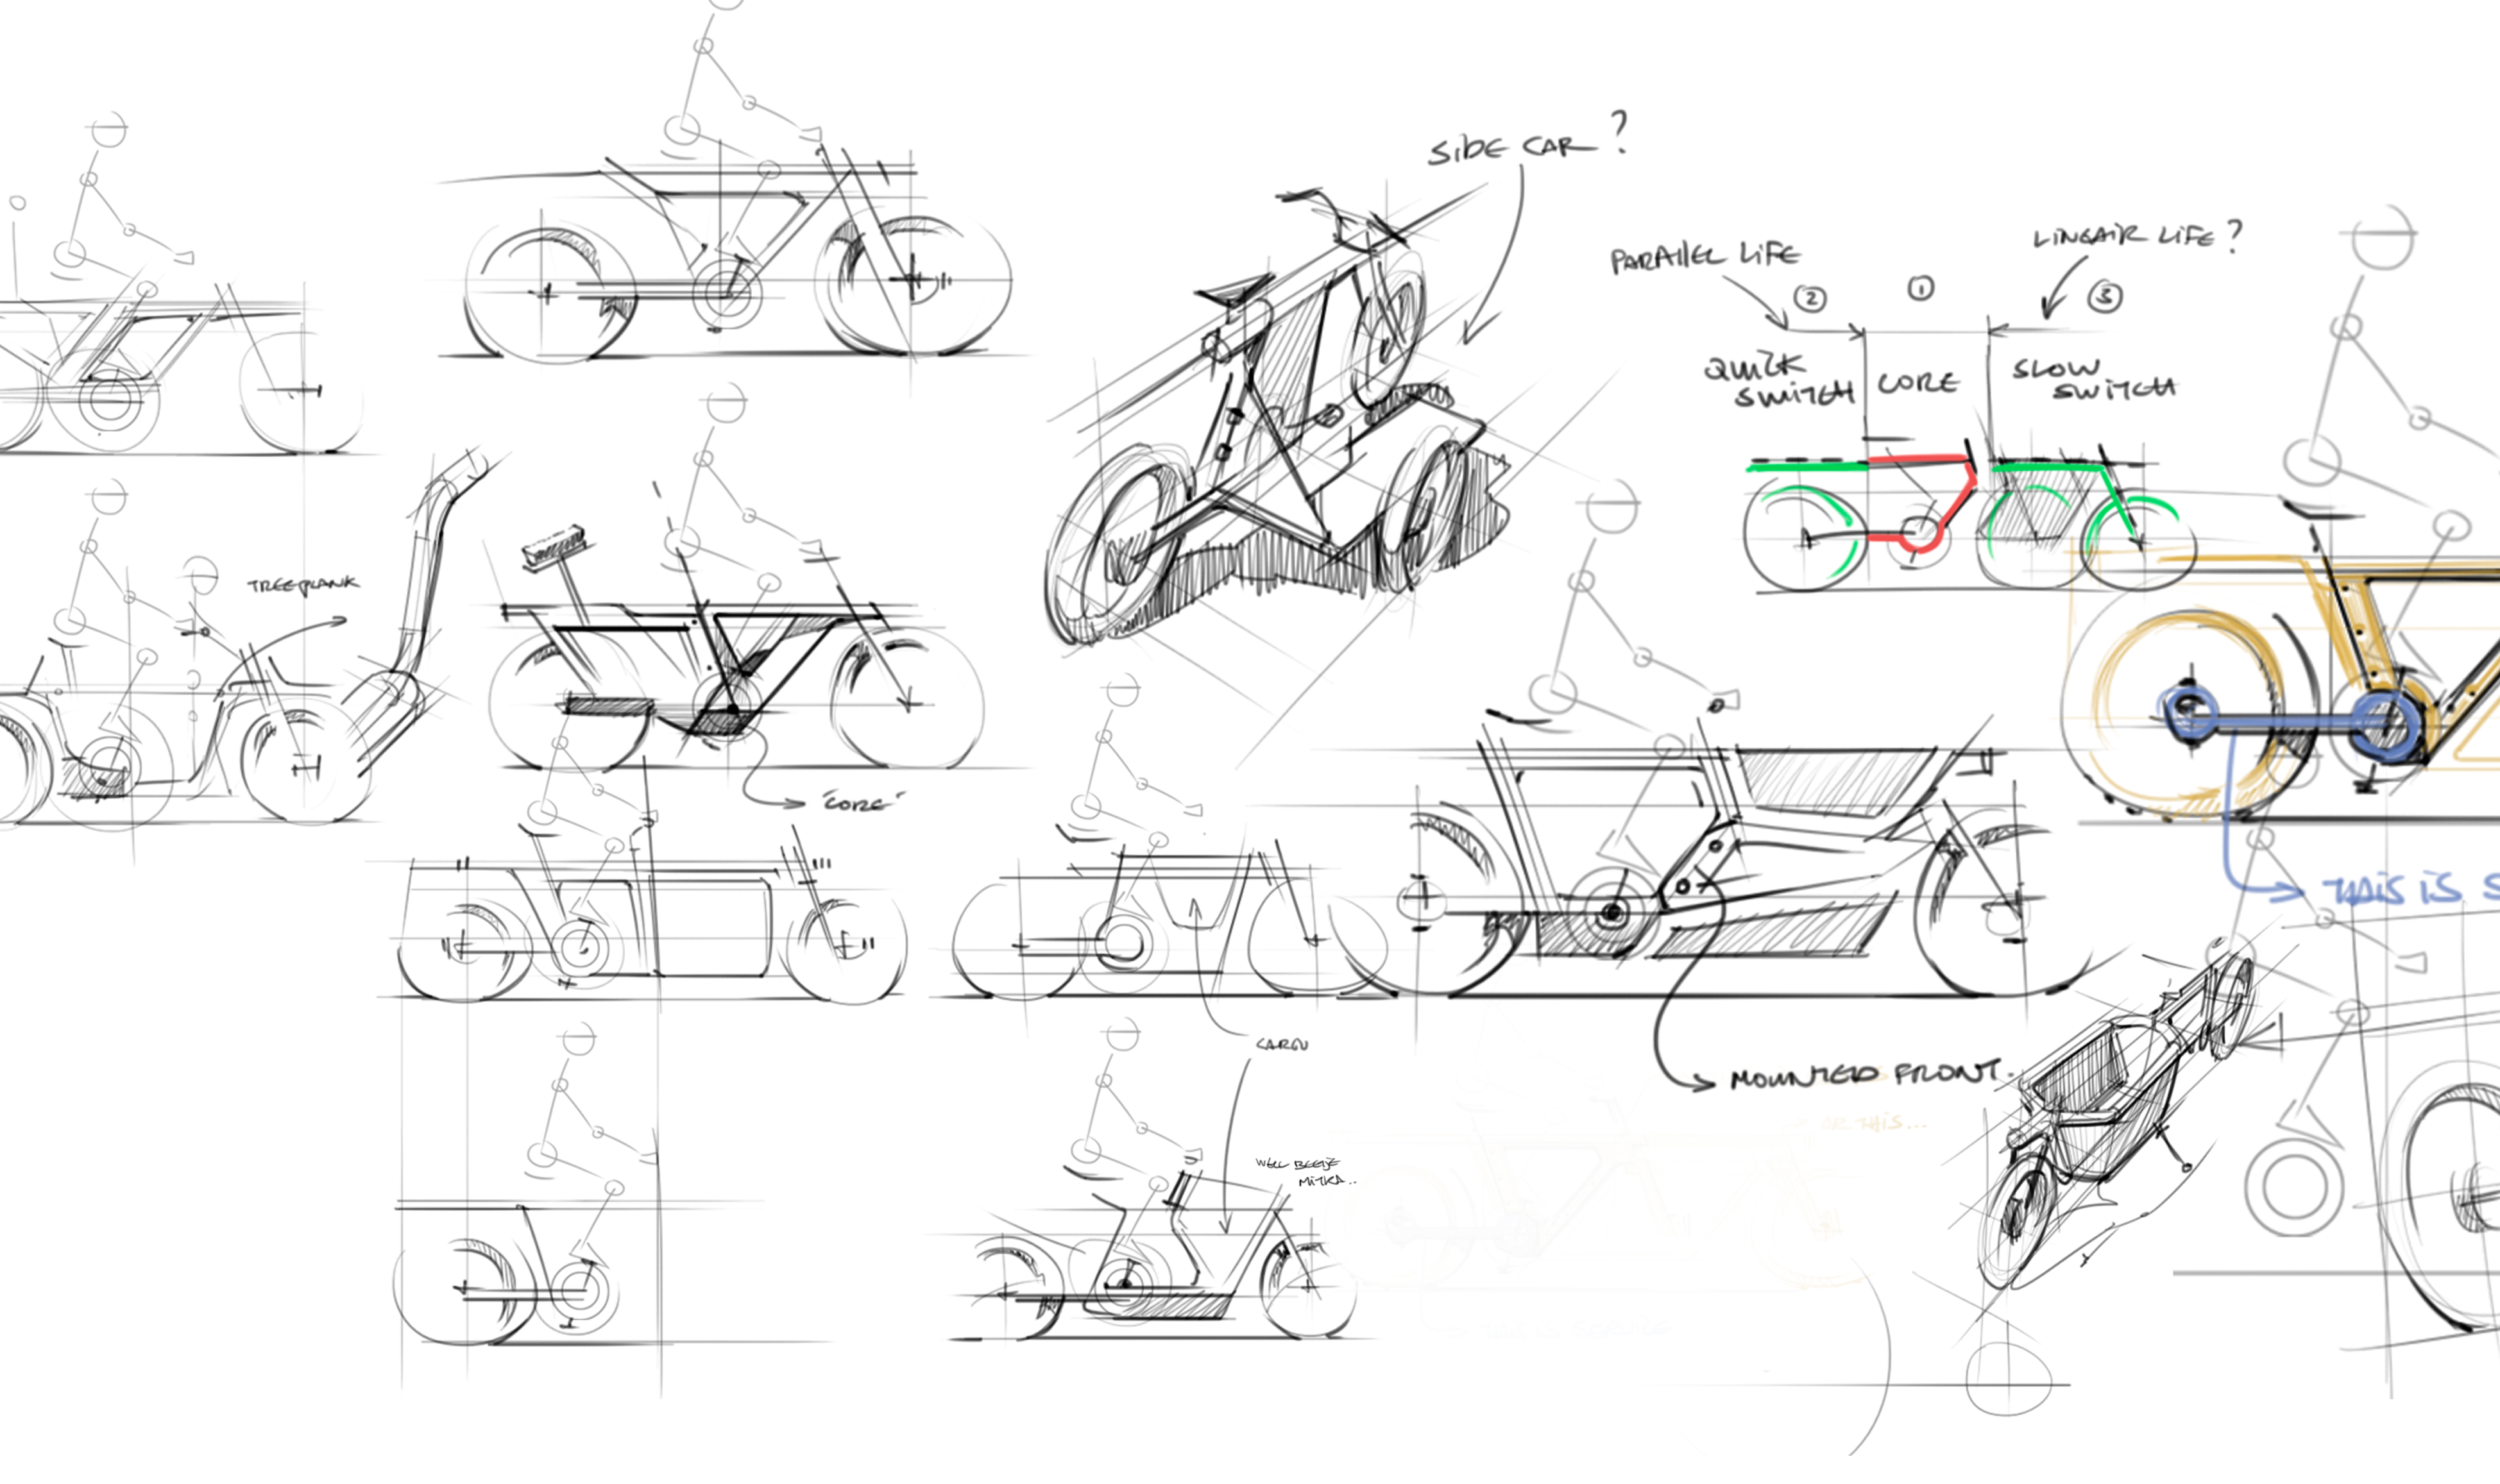 SIDE CAR ?
PARALLEL LIFE
LINEAIR LIFE ?
2
1
3
QUICK
SWITCH
CORE
SLOW
SWITCH
TREEPLANK
'CORE'
THIS IS S
CARGO
MOUNTED FRONT.
OR THIS...
WEL BEETJE
MITKA..